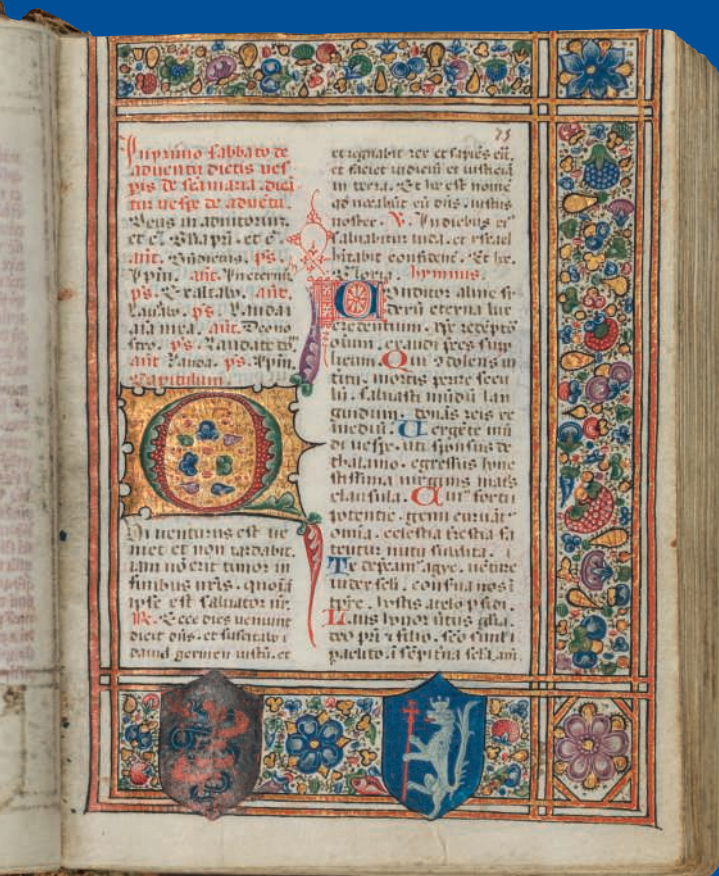 25
In primo sabbato de
adventu dictis ves
pis de
Deus in adiutoriuz.
ps.
ps. Exaltabo. ant.
Laudabo. ps. Lauda
aia mea. ant. Deo no
stro. ps. Laudate
ant. Lauda. ps.
Capitulum.
venturus est ve
niet et non tardabit.
iam nō erit timor in
finibus nr̄is. quoniā
ipse est salvator nr̄.
R. Ecce dies veniunt
dicit dn̄s. et suscitabo
david germen iustū. et
et regnabit rex et sapiēs eit.
et faciet iudiciū et iusticiā
in terra. Et hoc est nomē
eū dn̄s. iustus
noster. V. In diebus
salvabitur iuda. et ysrael
hītabit confidēt. Et hoc.
Gloria. hymnus.
Conditor alme si
derū eterna lux
credentium.
oīum. exaudi p̄ces supp
licum. Qui dolens in
mortis perire secu
lū. salvasti mūdū lan
guidum. donās reis re
mediū. Vergēte mū
di vespe. uti sponsus de
thalamo. egressus hone
stissima virginis matris
clausula. Cui forti
potentie. genu
omīa. celestia t̄restia fa
tentur nutu subdita.
Te deprecam̄ agye. vēture
iudex seculi. conserva nos ī
tpr̄e. hostis a telo pfidi.
Laus honor v̄tus gl̄a.
deo pr̄i et filio. sc̄o simul
paclito. ī sēpit̄na sc̄la. am̄.